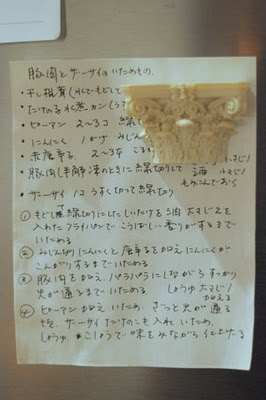 豚肉とザーサイのいためもの。
・干し椎茸(水でもどして
・たけのこ水煮カン(うす
・ピーマン 2〜3コ 線
・にんにく 1かけ みじん
・赤唐辛子 2〜3本
・豚肉(半解凍のときに線切りして 酒 大さじ1
もみこんでおく)
・ザーサイ 1コ うすく切って線切り
① もどし線切りにしたしいたけを油大さじ2を
入れたフライパンで こうばしい香りがするまで
いためる
② みじん切りにんにくと唐辛子を加えにんにくが
こんがりするまでいためる
③ 豚肉を加え、パラパラにしながらすっかり
火が通るまでいためる しょうゆ 大さじ1
加える
④ ピーマン加えいため、ざっと火が通っ
たら、ザーサイたけのこも入れいため、
しょうゆ、こしょうで味をみながら仕上げる